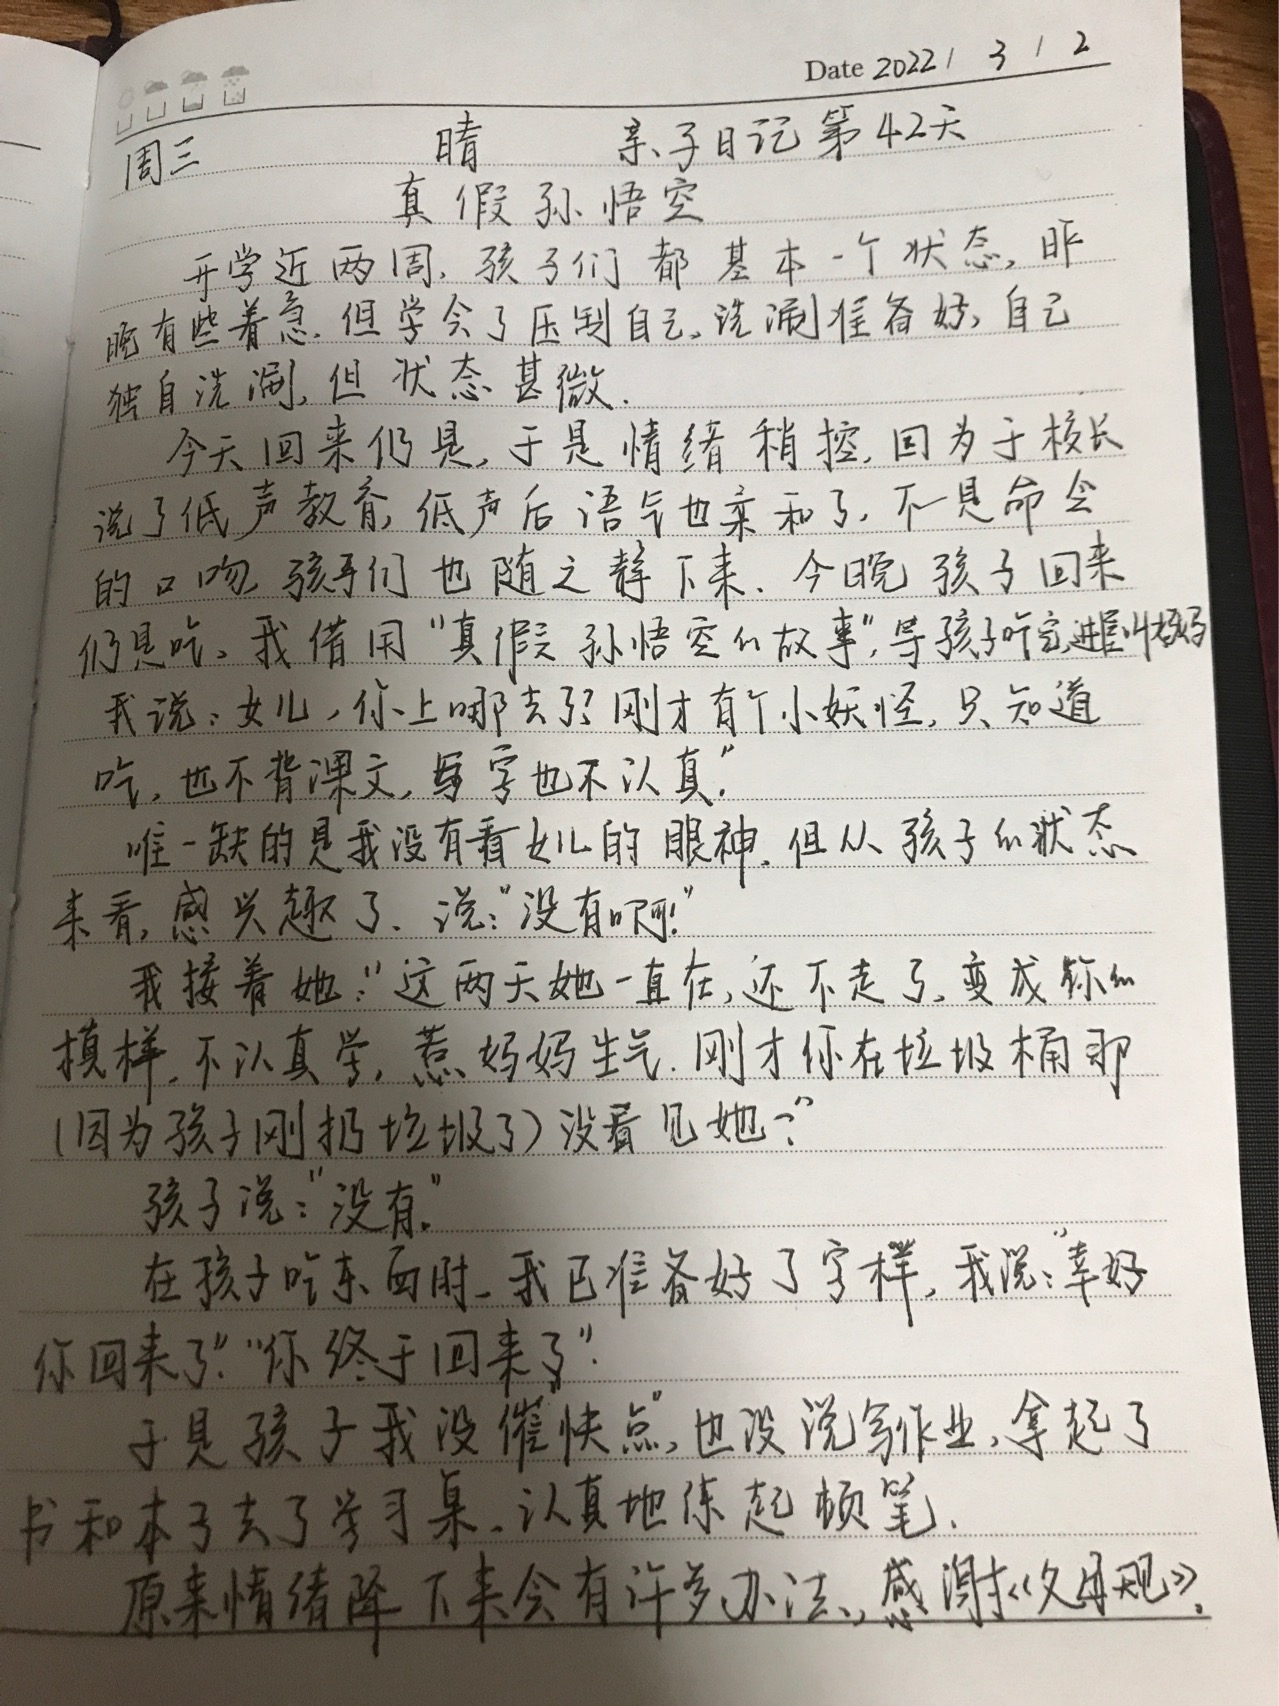 Date 2022 / 3 / 2
周三 晴 亲子日记第42天
真假孙悟空
开学近两周,孩子们都基本一个状态,昨
晚有些着急,但学会了压制自己,洗涮准备好,自己
独自洗涮,但状态甚微.
今天回来仍是,于是情绪稍控,因为于校长
说了低声教育,低声后语气也亲和了,不是命令
的口吻孩子们也随之静下来.今晚孩子回来
仍是吃,我借用“真假孙悟空的故事”,等孩子吃完,进屋叫妈妈
我说:女儿,你上哪去了?刚才有个小妖怪,只知道
吃,也不背课文,写字也不认真.”
唯一缺的是我没有看女儿的眼神,但从孩子的状态
来看,感兴趣了.说:“没有啊!”
我接着她:“这两天她一直在,还不走了,变成你的
模样,不认真学,惹妈妈生气.刚才你在垃圾桶那
(因为孩子刚扔垃圾了)没看见她?”
孩子说:“没有.”
在孩子吃东西时,我已准备好了字样,我说:“幸好
你回来了”.“你终于回来了”.
于是孩子我没催“快点”,也没说写作业,拿起了
书和本子去了学习桌,认真地练起顿笔.
原来情绪降下来会有许多办法,感谢《父母规》.